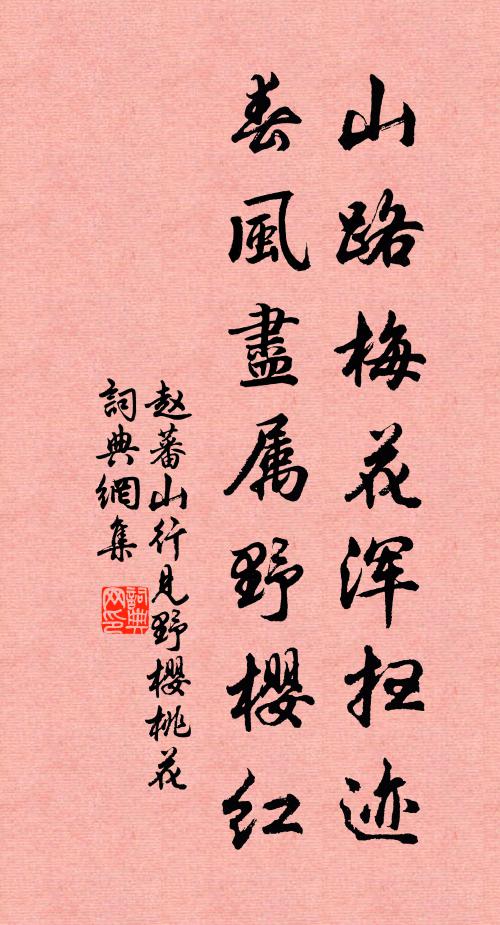 山路梅花浑扫迹
春風盡属野櫻红
赵蕃山行见野櫻桃花
詞典網集
詞典网印